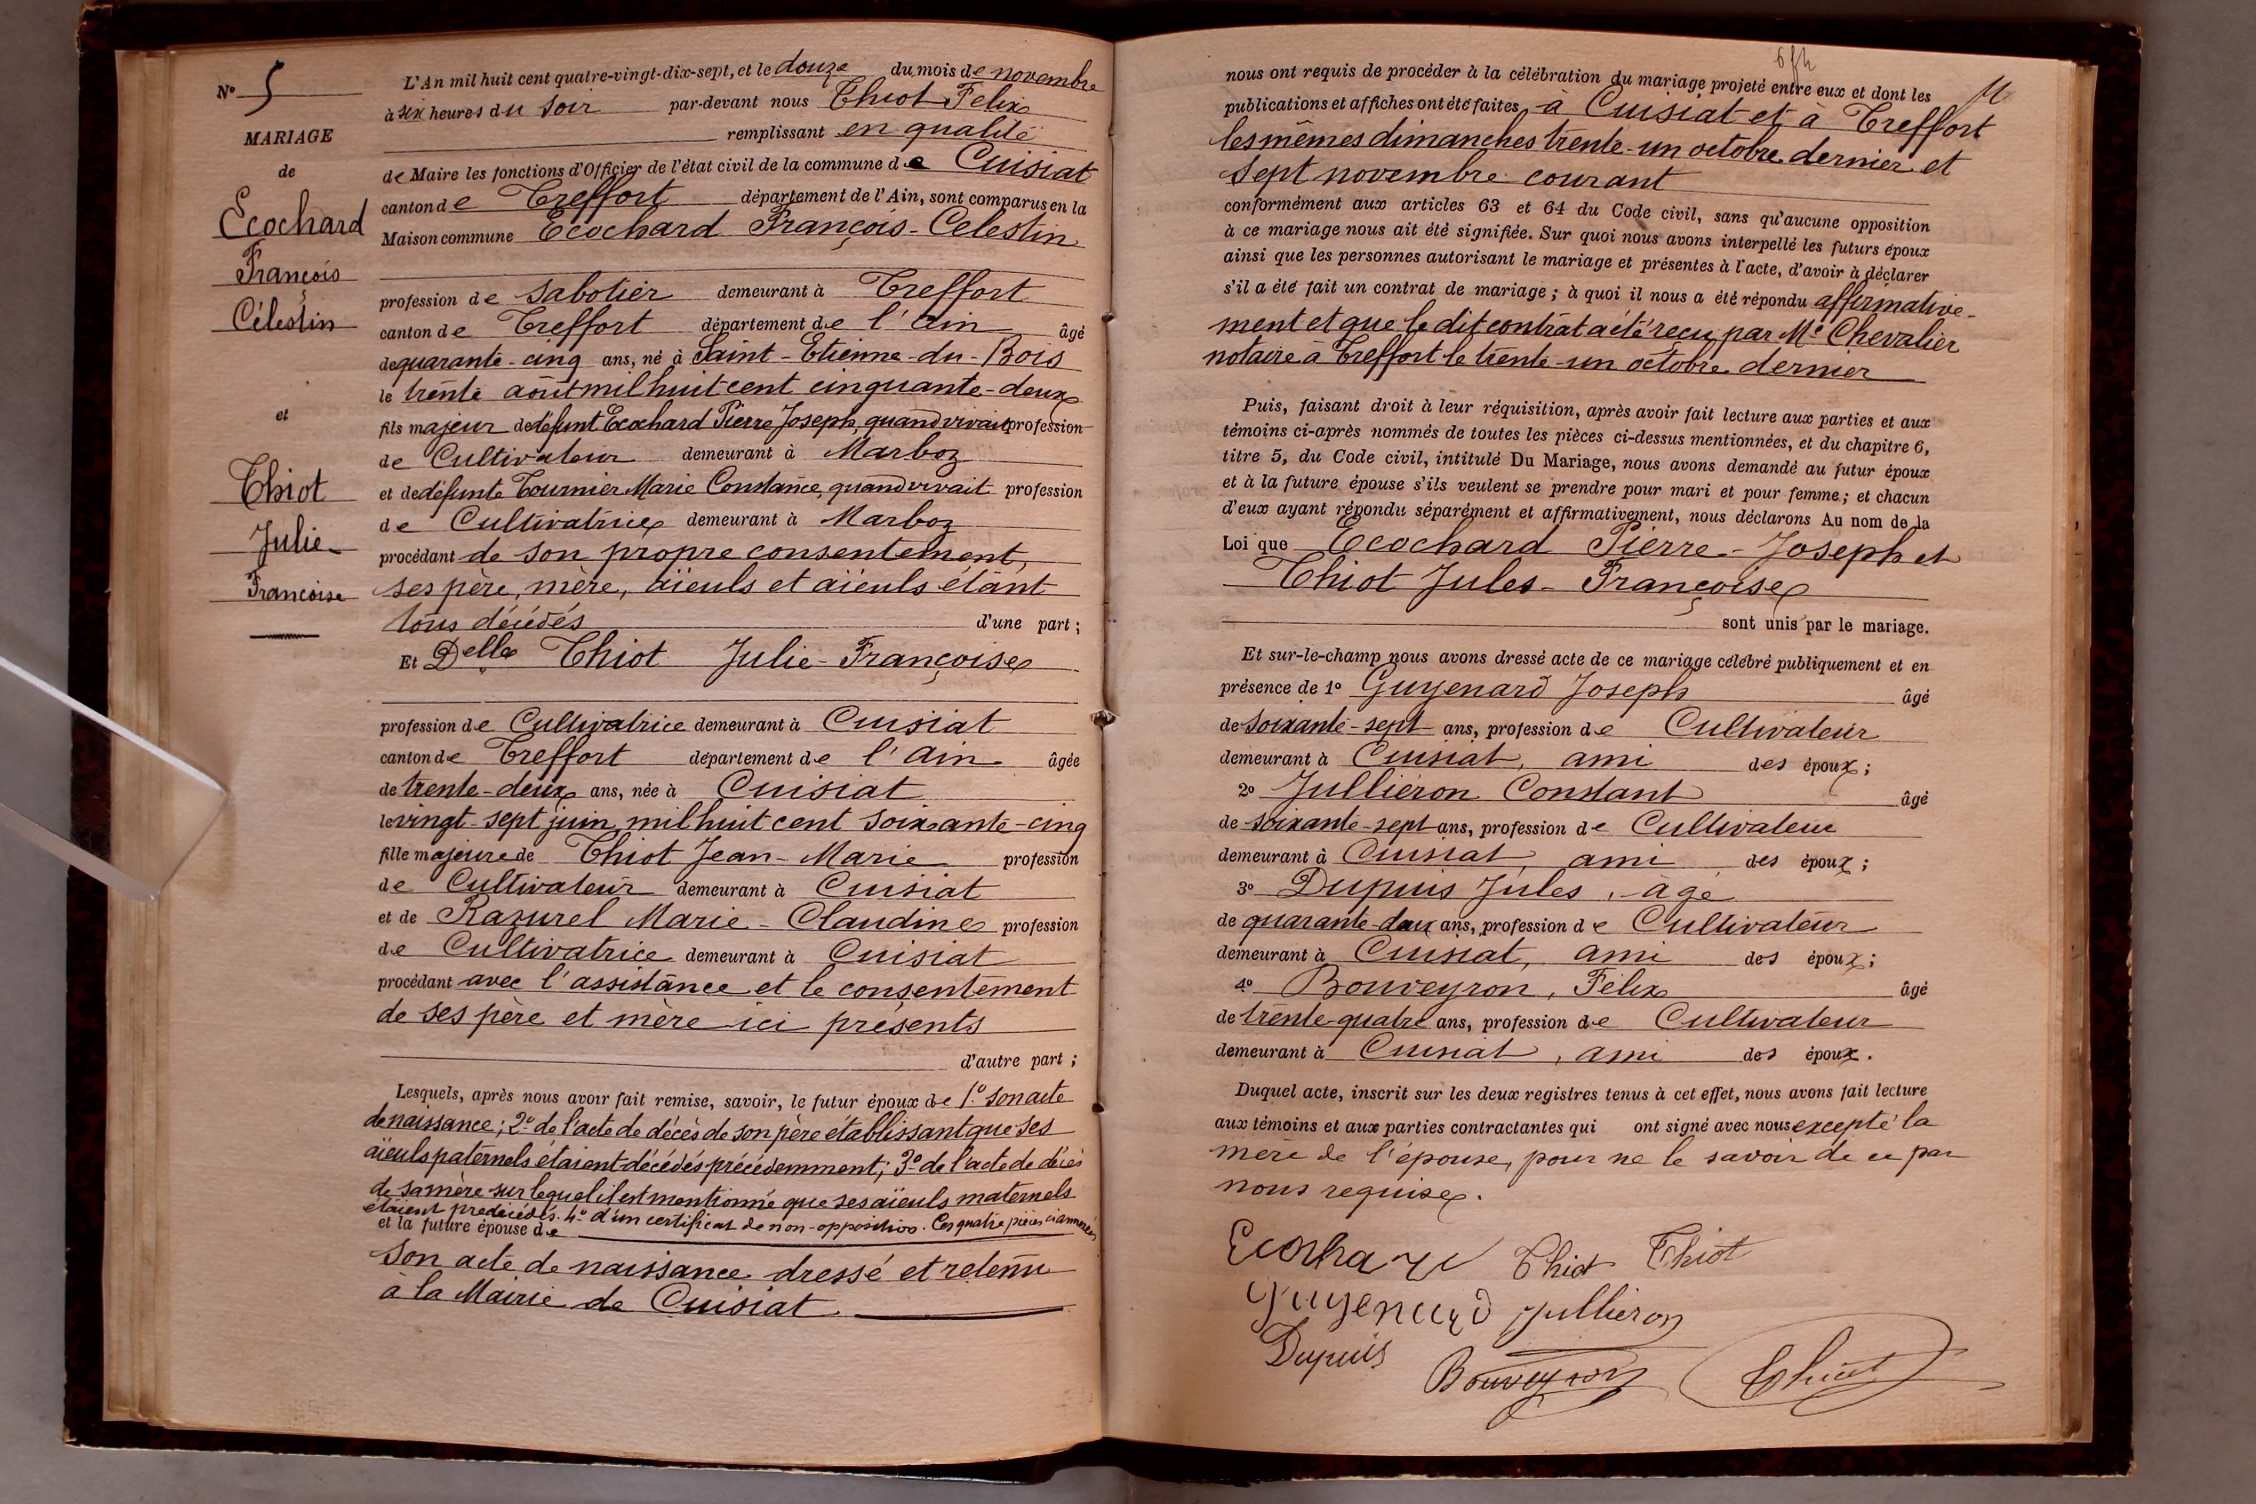 N° 5
MARIAGE
de
Ecochard
François
Célestin
et
Thiot
Julie
Françoise
L'An mil huit cent quatre-vingt-dix-sept, et le douze du mois de novembre
à six heures du soir par-devant nous Thiot Felix
remplissant en qualité
de Maire les fonctions d'Officier de l'état civil de la commune de Cuisiat
canton de Treffort département de l'Ain, sont comparus en la
Maison commune Ecochard François-Celestin
profession de sabotier demeurant à Treffort
canton de Treffort département de l'ain âgé
de quarante-cinq ans, né à Saint-Etienne-du-Bois
le trente août mil huit cent cinquante-deux
fils majeur de défunt Ecochard Pierre Joseph, quand vivait profession
de Cultivateur demeurant à Marboz
et de défunte Tournier Marie Constance, quand vivait profession
de Cultivatrice demeurant à Marboz
procédant de son propre consentement,
ses père, mère, aïeuls et aïeuls étant
tous décédés d'une part ;
Et Delle Thiot Julie-Françoise
profession de Cultivatrice demeurant à Cuisiat
canton de Treffort département de l'ain âgée
de trente-deux ans, née à Cuisiat
le vingt-sept juin mil huit cent soixante-cinq
fille majeure de Thiot Jean-Marie profession
de Cultivateur demeurant à Cuisiat
et de Razurel Marie-Claudine profession
de Cultivatrice demeurant à Cuisiat
procédant avec l'assistance et le consentement
de ses père et mère ici présents
d'autre part ;
Lesquels, après nous avoir fait remise, savoir, le futur époux de 1° son acte
de naissance ; 2° de l'acte de décès de son père établissant que ses
aïeuls paternels étaient décédés précédemment ; 3° de l'acte de décès
de sa mère sur lequel il est mentionné que ses aïeuls maternels
étaient prédécédés. 4° d'un certificat de non-opposition. Ces quatre pièces ci annexées
et la future épouse de
son acte de naissance dressé et retenu
à la Mairie de Cuisiat.
11
nous ont requis de procéder à la célébration du mariage projeté entre eux et dont les
publications et affiches ont été faites à Cuisiat et à Treffort
les mêmes dimanches trente-un octobre dernier et
sept novembre courant
conformément aux articles 63 et 64 du Code civil, sans qu'aucune opposition
à ce mariage nous ait été signifiée. Sur quoi nous avons interpellé les futurs époux
ainsi que les personnes autorisant le mariage et présentes à l'acte, d'avoir à déclarer
s'il a été fait un contrat de mariage ; à quoi il nous a été répondu affirmative-
ment et que le dit contrat a été reçu par Me Chevalier
notaire à Treffort le trente-un octobre dernier
Puis, faisant droit à leur réquisition, après avoir fait lecture aux parties et aux
témoins ci-après nommés de toutes les pièces ci-dessus mentionnées, et du chapitre 6,
titre 5, du Code civil, intitulé Du Mariage, nous avons demandé au futur époux
et à la future épouse s'ils veulent se prendre pour mari et pour femme ; et chacun
d'eux ayant répondu séparément et affirmativement, nous déclarons Au nom de la
Loi que Ecochard Pierre-Joseph et
Thiot Jules-Françoise
sont unis par le mariage.
Et sur-le-champ nous avons dressé acte de ce mariage célébré publiquement et en
présence de 1° Guyenard Joseph âgé
de soixante-sept ans, profession de Cultivateur
demeurant à Cuisiat, ami des époux ;
2° Jullieron Constant âgé
de soixante-sept ans, profession de Cultivateur
demeurant à Cuisiat, ami des époux ;
3° Dupuis Jules, âgé
de quarante-deux ans, profession de Cultivateur
demeurant à Cuisiat, ami des époux ;
4° Bouveyron, Félix âgé
de trente-quatre ans, profession de Cultivateur
demeurant à Cuisiat, ami des époux.
Duquel acte, inscrit sur les deux registres tenus à cet effet, nous avons fait lecture
aux témoins et aux parties contractantes qui ont signé avec nous excepté la
mère de l'épouse, pour ne le savoir de ce par
nous requise.
Ecochard Thiot Thiot
Guyenard Jullieron
Dupuis
Bouveyron Thiot